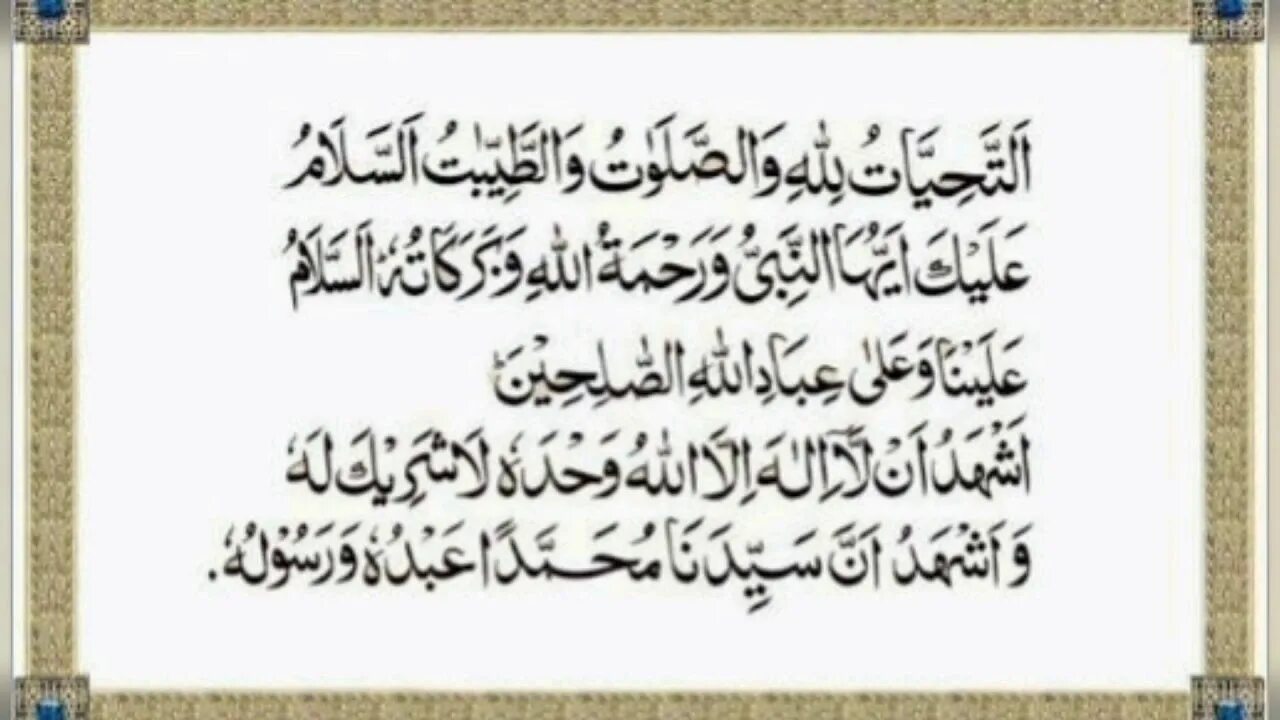 اَلتَّحِيَّاتُ لِلّٰهِ وَالصَّلَوٰتُ وَالطَّيِّبٰتُ اَلسَّلَامُ
عَلَيْكَ اَيُّهَا النَّبِيُّ وَرَحْمَةُ اللّٰهِ وَبَرَكَاتُهٗ اَلسَّلَامُ
عَلَيْنَا وَعَلٰى عِبَادِ اللّٰهِ الصّٰلِحِيْنَ
اَشْهَدُ اَنْ لَّآ اِلٰهَ اِلَّا اللّٰهُ وَحْدَهٗ لَا شَرِيْكَ لَهٗ
وَ اَشْهَدُ اَنَّ سَيِّدَنَا مُحَمَّدًا عَبْدُهٗ وَرَسُوْلُهٗ.